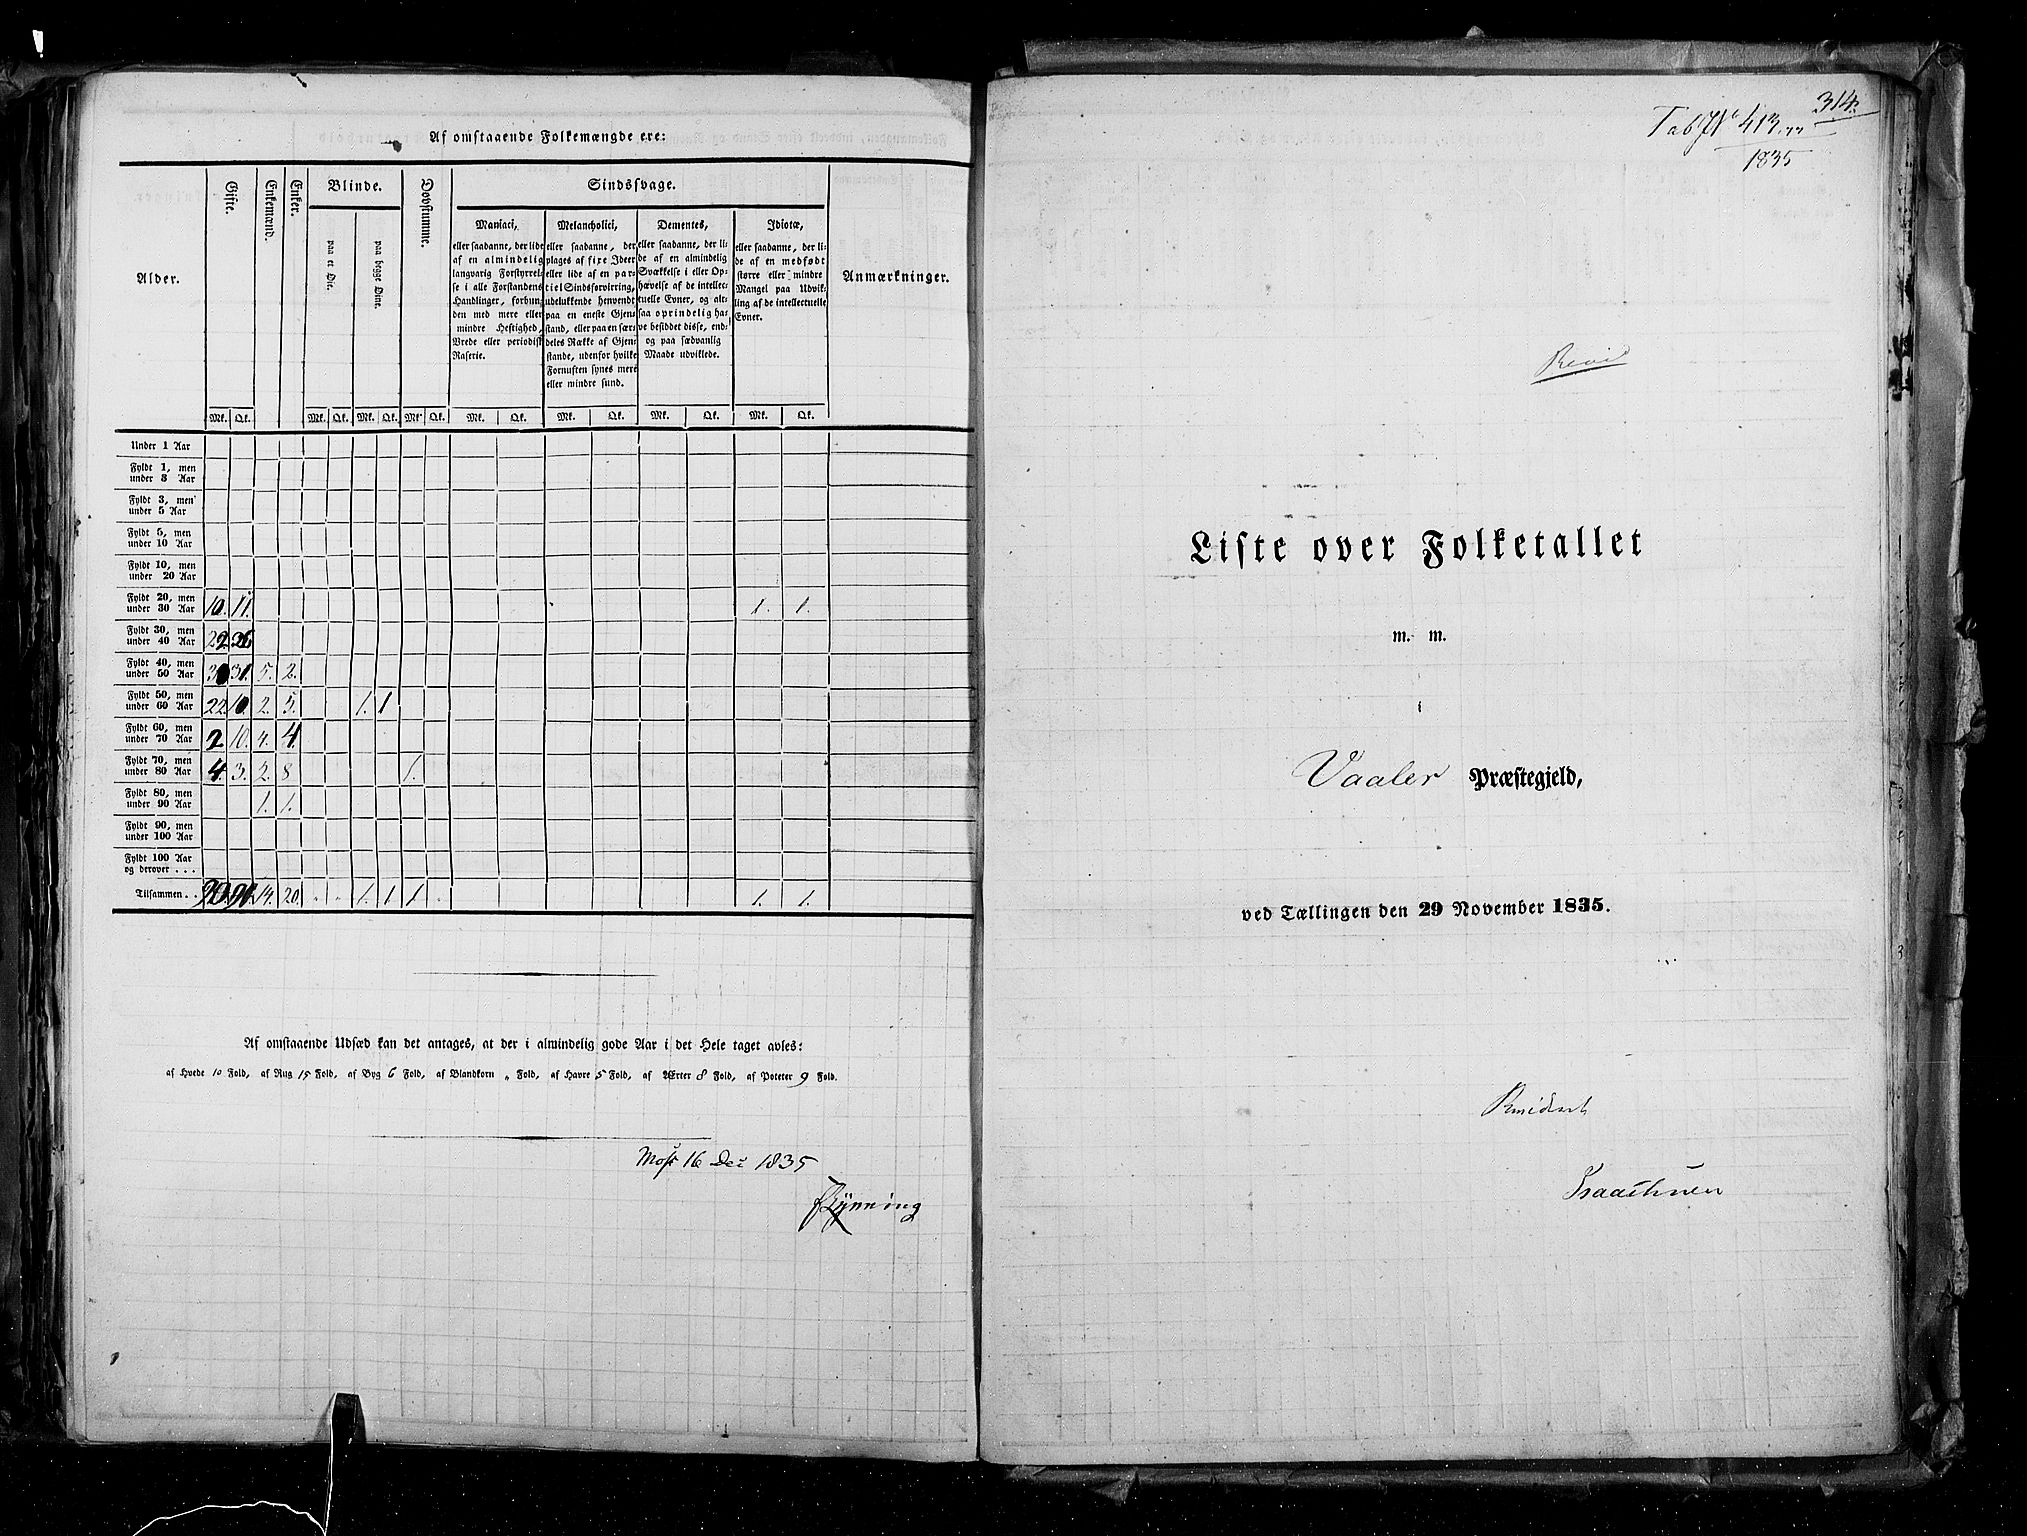 Af omstaaende Folkemængde ere:
Alder.
Gifte.
Enkemænd.
Enker.
Blinde.
paa et Øie.
paa begge Øine.
Døvstumme.
Sindssvage.
Maniaci,
eller saadanne, der lide
af en almindelig
langvarig Forstyrrel-
se i alle Forstandens
Handlinger, forbun-
den med mere eller
mindre Heftighed,
Vrede eller periodisk
Raserie.
Melancholici,
eller saadanne, der
plages af fixe Ideer
eller lide af en par-
tiel Sindsforvirring,
udelukkende henvendt
paa en eneste Gjen-
stand, eller paa en sær-
deles Række af Gjen-
stande, udenfor hvilke
Fornuften synes mere
eller mindre sund.
Dementes,
eller saadanne, der li-
de af en almindelig
Svækkelse i eller Op-
hævelse af de intellec-
tuelle Evner, og alt-
saa oprindelig ha-
ve besiddet disse, end-
og paa sædvanlig
Maade udviklede.
Idiotæ,
eller saadanne, der li-
de af en medfødt
større eller mindre
Mangel paa Udvik-
ling af de intellectuelle
Evner.
Anmærkninger.
Mk. Qk. Mk. Qk. Mk. Qk. Mk. Qk. Mk. Qk. Mk. Qk. Mk. Qk. Mk. Qk.
Under 1 Aar
Fyldt 1, men
under 3 Aar
Fyldt 3, men
under 5 Aar
Fyldt 5, men
under 10 Aar
Fyldt 10, men
under 20 Aar
Fyldt 20, men
under 30 Aar 10. 11. 1. 1.
Fyldt 30, men
under 40 Aar
Fyldt 40, men
under 50 Aar 31. 5. 2.
Fyldt 50, men
under 60 Aar 22. 10. 2. 5. 1. 1
Fyldt 60, men
under 70 Aar 2 10. 4. 4
Fyldt 70, men
under 80 Aar 4. 3. 2. 8 1.
Fyldt 80, men
under 90 Aar 1. 1.
Fyldt 90, men
under 100 Aar
Fyldt 100 Aar
og derover . . .
Tilsammen . . 14. 20. 1. 1 1. 1. 1.
Af omstaaende Udsæd kan det antages, at der i almindelig gode Aar i det Hele taget avles:
af Hvede 10 Fold, af Rug 15 Fold, af Byg 6 Fold, af Blandkorn „ Fold, af Havre 5 Fold, af Ærter 8 Fold, af Poteter 9 Fold.
Moss 16 Dec 1835
314.
Tab No 413
1835
Revid
Liste over Folketallet
m. m.
i
Vaaler Præstegjeld,
ved Tællingen den 29 November 1835.